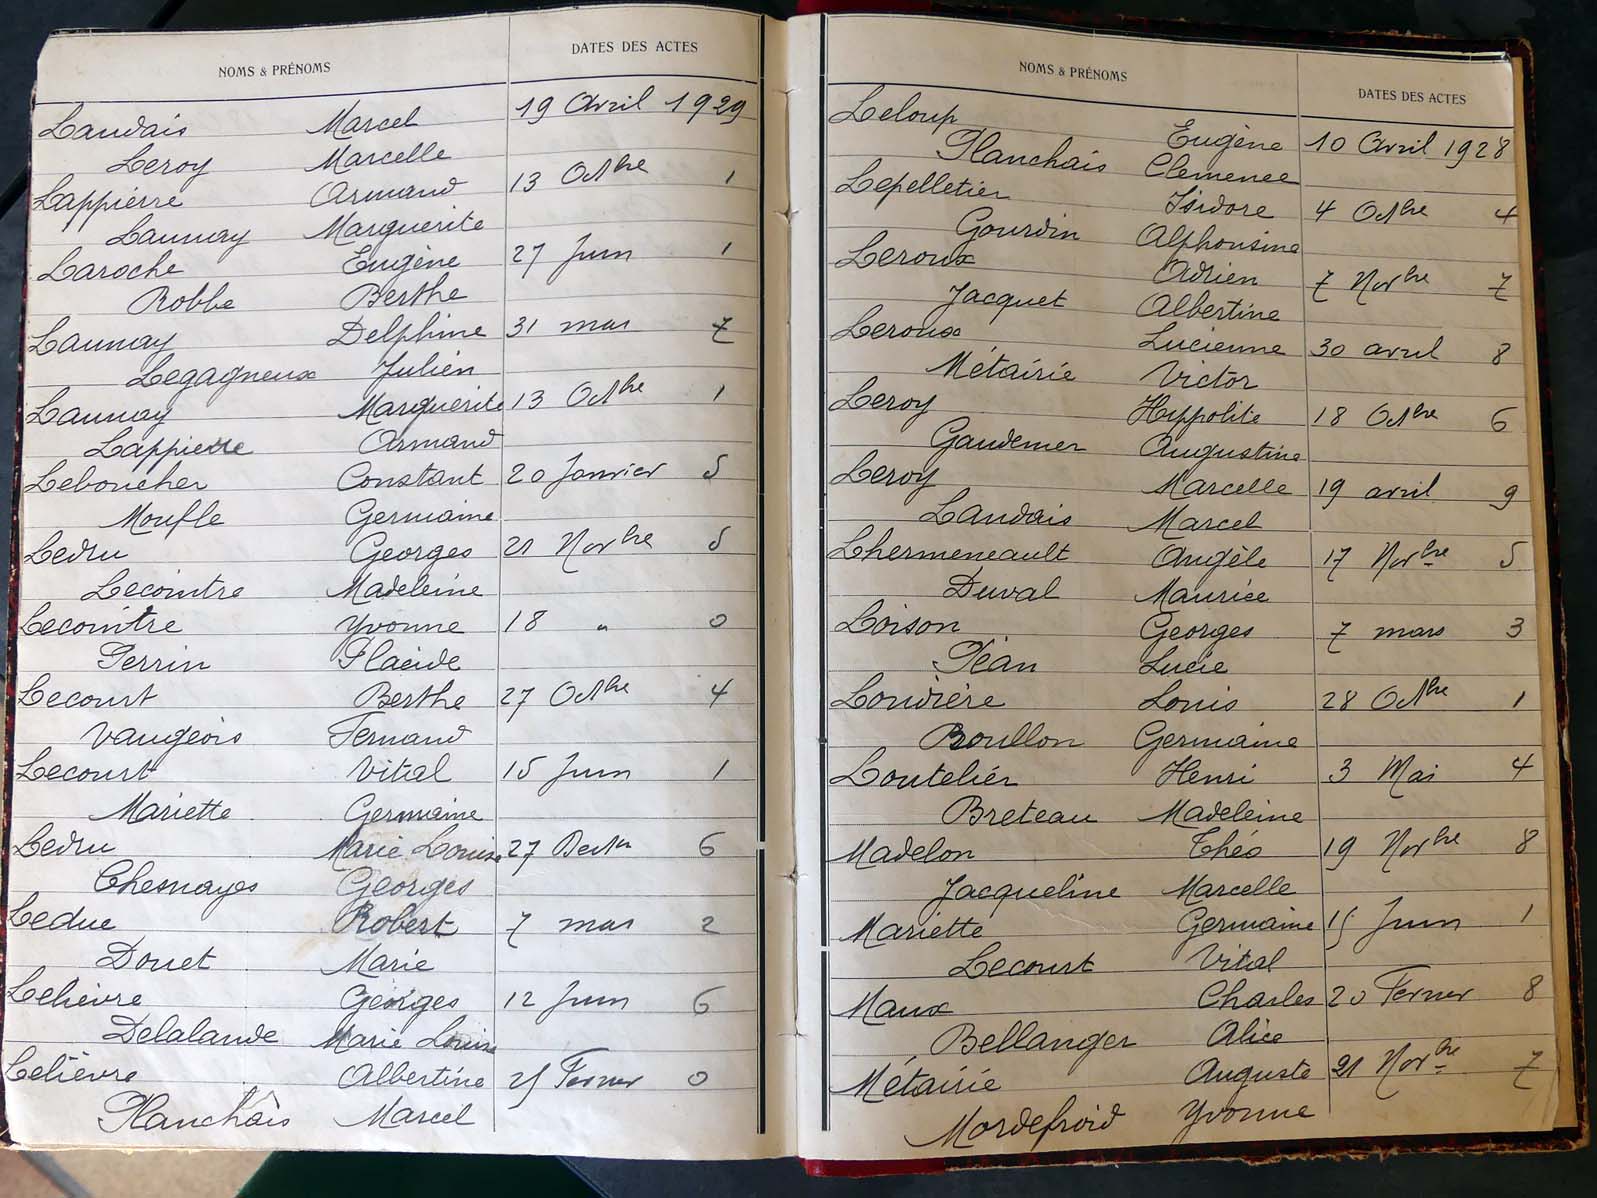 NOMS & PRÉNOMS DATES DES ACTES
Landais Marcel 19 Avril 1929
Leroy Marcelle
Lappierre Armand 13 Octbre 1
Launay Marguerite
Laroche Eugène 27 Juin 1
Robbe Berthe
Launay Delphine 31 mars 7
Legagneux Julien
Launay Marguerite 13 Octbre 1
Lappierre Armand
Leboucher Constant 20 Janvier 5
Moufle Germaine
Ledru Georges 21 Novbre 5
Lecointre Madeleine
Lecointre Yvonne 18 " 0
Perrin Placide
Lecourt Berthe 27 Octbre 4
Vaugeois Fernand
Lecourt Vital 15 Juin 1
Mariette Germaine
Ledru Marie Louise 27 6
Chesnayes Georges
Leduc Robert 7 mars 2
Douet Marie
Lelièvre Georges 12 Juin 6
Delalande Marie Louise
Lelièvre Albertine 25 Fevrier 0
Planchais Marcel
NOMS & PRÉNOMS DATES DES ACTES
Leloup Eugène 10 Avril 1928
Planchais Clemence
Lepelletier Isidore 4 Octbre 4
Gourdin Alphonsine
Leroux Adrien 7 Novbre 7
Jacquet Albertine
Leroux Lucienne 30 avril 8
Métairie Victor
Leroy Hippolite 18 Octbre 6
Gaudemer Augustine
Leroy Marcelle 19 avril 9
Landais Marcel
Lhermeneault Angèle 17 Novbre 5
Duval Maurice
Loison Georges 7 mars 3
Péan Lucie
Loudière Louis 28 Octbre 1
Roullon Germaine
Loutelier Henri 3 Mai 4
Breteau Madeleine
Madelon Théo 19 Novbre 8
Jacqueline Marcelle
Mariette Germaine 15 Juin 1
Lecourt Vital
Maux Charles 20 Fevrier 8
Bellanger Alice
Métairie Auguste 21 Novbre 7
Mordefroid Yvonne